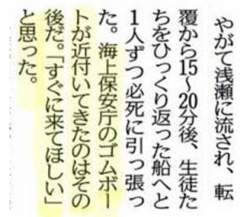 やがて浅瀬に流され、転
覆から15〜20分後、生徒た
ちをひっくり返った船へと
1人ずつ必死に引っ張っ
た。海上保安庁のゴムボー
トが近付いてきたのはその
後だ。「すぐに来てほしい」
と思った。